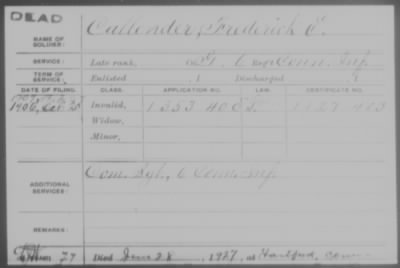 DEAD
NAME OF SOLDIER: Callender, Frederick E.
SERVICE: Late rank, Co. G, 6 Reg't Conn. Inf
TERM OF SERVICE: Enlisted , 1 Discharged , 1
DATE OF FILING. CLASS. APPLICATION NO. LAW. CERTIFICATE NO.
1906, Invalid, 1353400
Widow,
Minor,
ADDITIONAL SERVICES: Com. Sgt., 6 Conn. Inf
REMARKS:
27 Died June 28, 1927, at Hartford, Conn